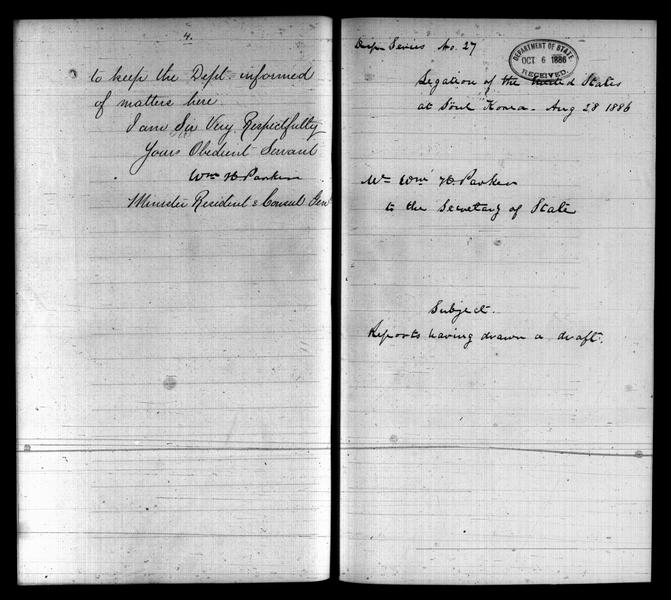 4.
to keep the Dept. informed
of matters here.
I am Sir Very Respectfully
Your Obedient Servant
Wm H Parker
Minister Resident & Consul Gen
Series No. 27
DEPARTMENT OF STATE
OCT 6 1886
RECEIVED
Legation of the United States
at Söul Korea. Aug 28 1886
Mr Wm H Parker
to the Secretary of State
Subject.
Reports having drawn a draft.